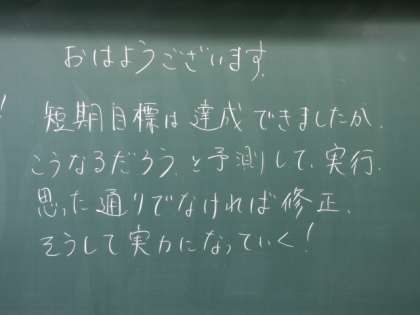 おはようございます.
!
短期目標は達成できましたか.
こうなるだろう.と予測して、実行.
思った通りでなければ修正、
そうして実力になっていく!